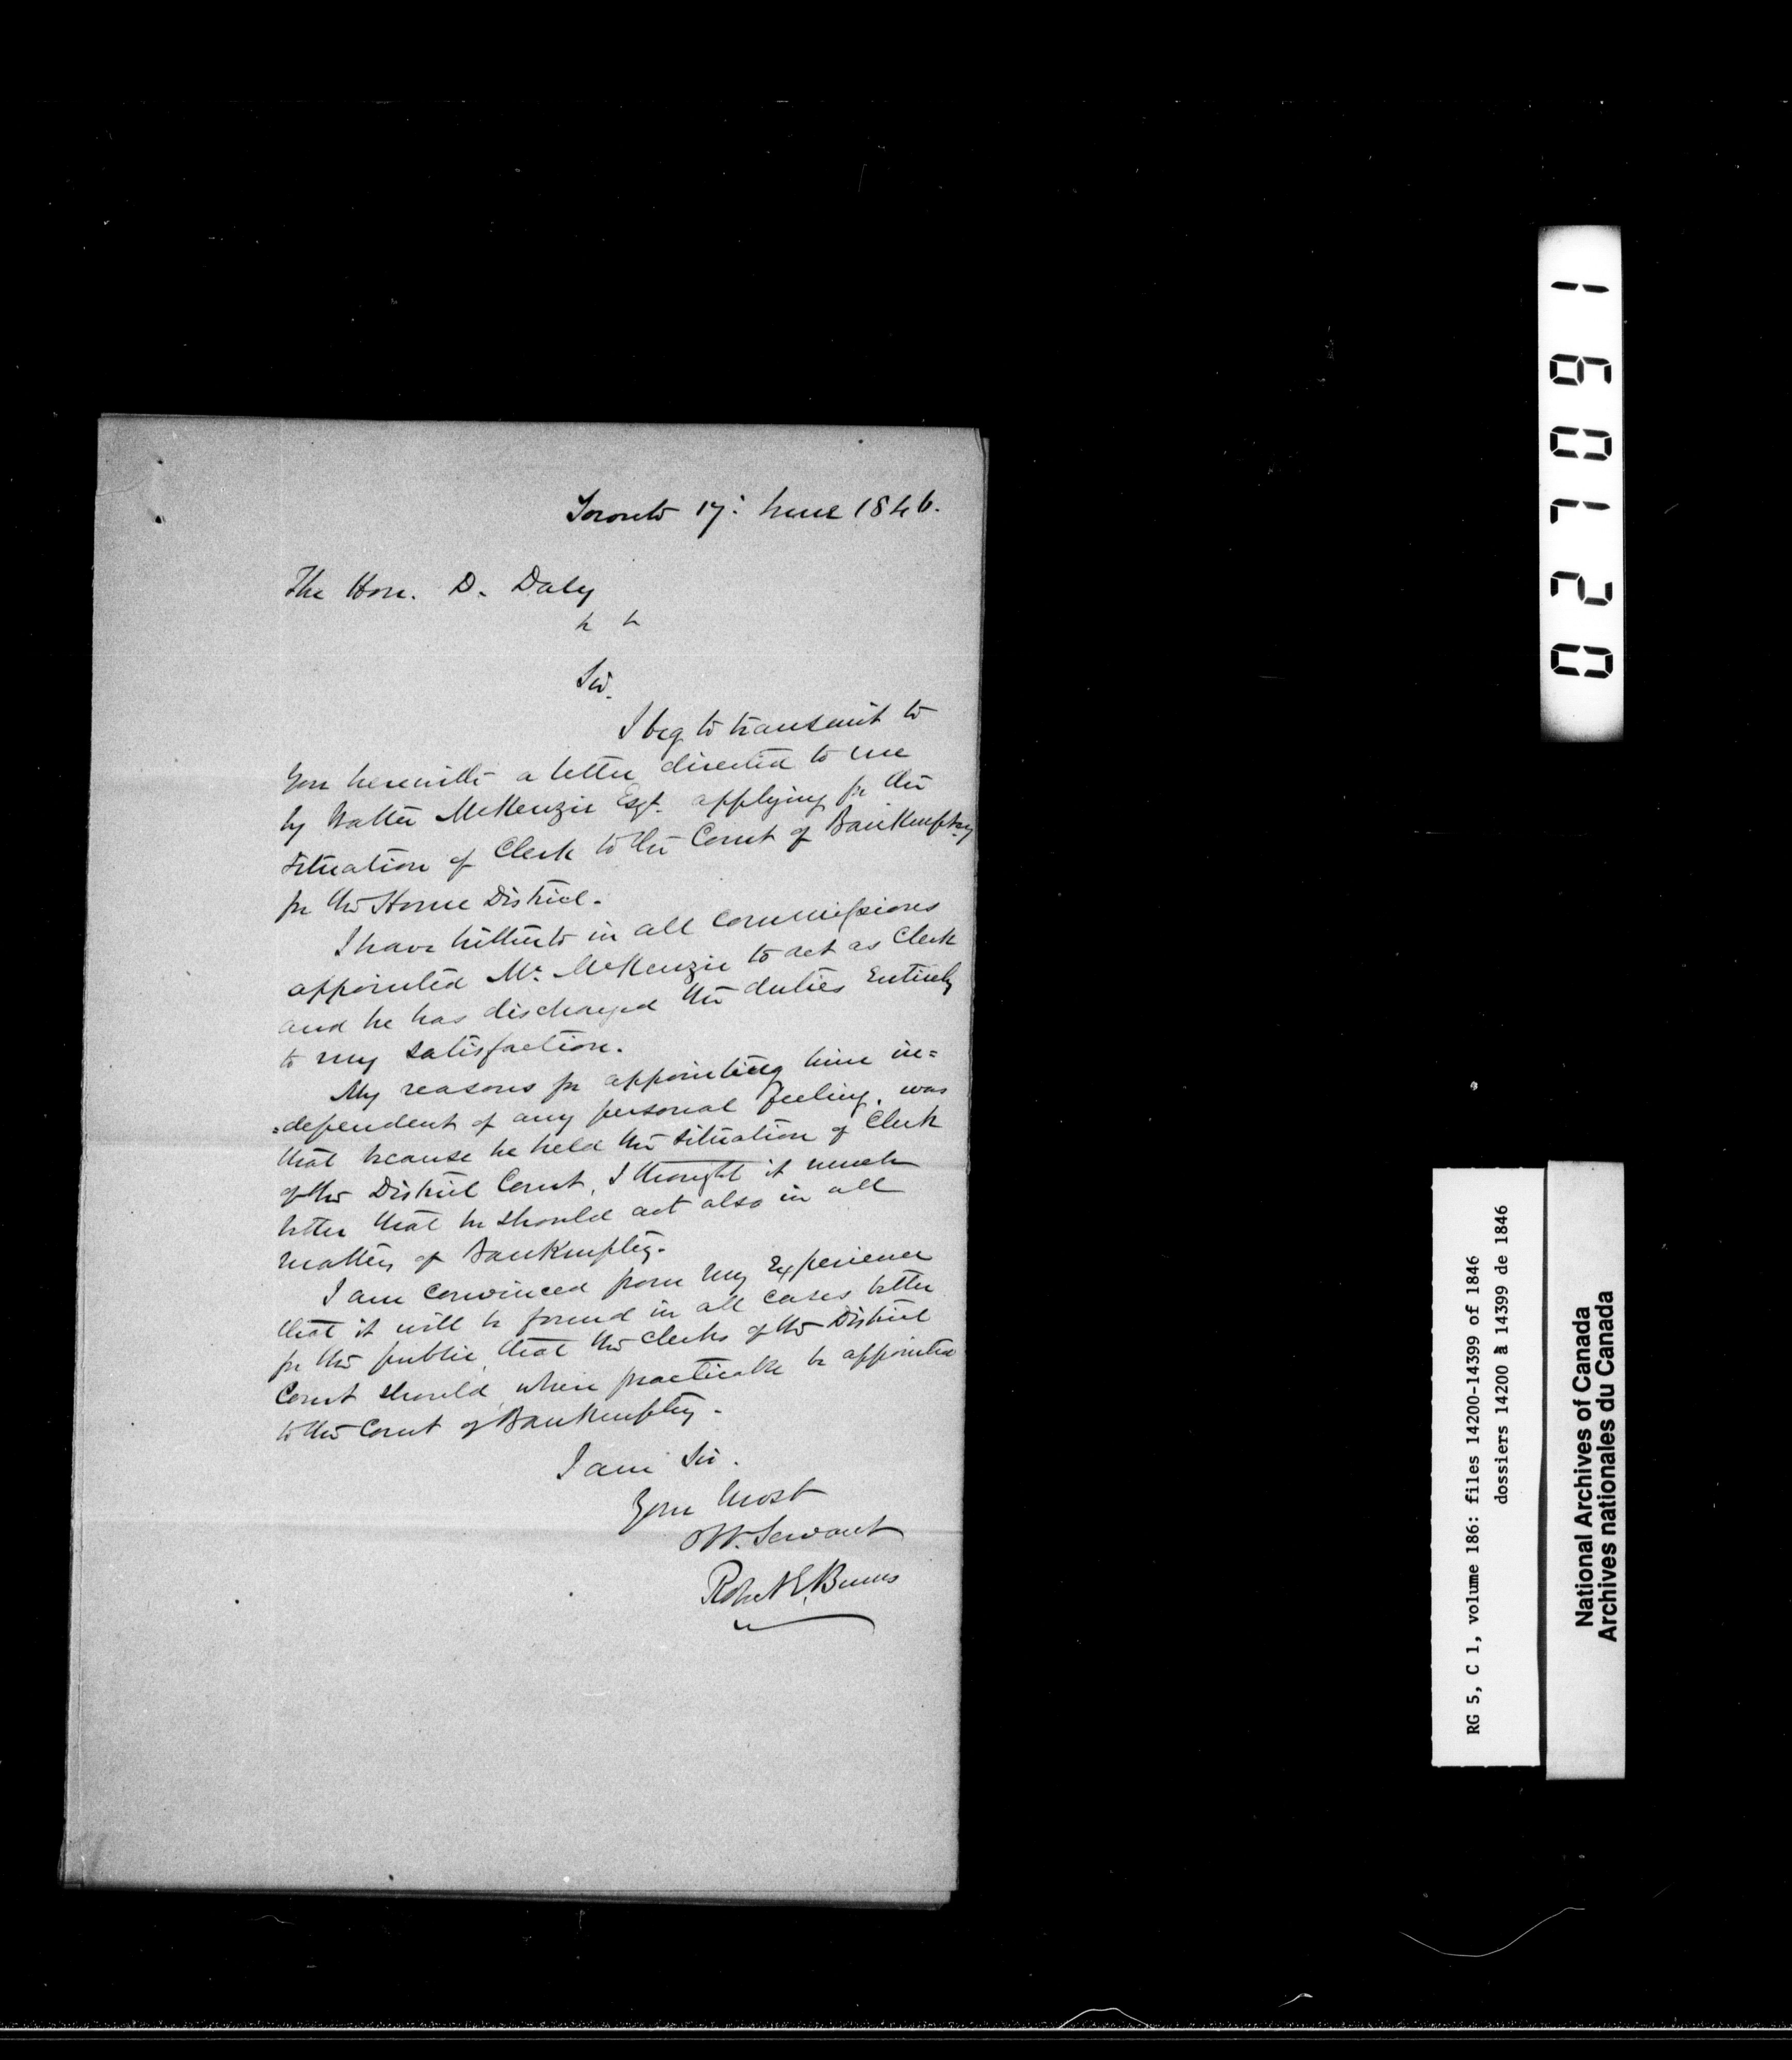 Toronto 17: June 1846.
The Hon. D. Daly
Sir.
I beg to transmit to
you herewith a letter directed to me
by Walter McKenzie Esqr. applying for the
situation of Clerk to the Court of Bankruptcy
for the Home District.
I have hitherto in all commissions
appointed Mr. McKenzie to act as Clerk
and he has discharged the duties entirely
to my satisfaction.
My reasons for appointing him in=
=dependent of any personal feeling, was
that because he held the situation of Clerk
of the District Court, I thought it much
better that he should act also in all
matters of Bankruptcy.
I am convinced from my experience
that it will be found in all cases better
for the public, that the clerks of the District
Court should, where practicable be appointed
to the Court of Bankruptcy.
I am Sir.
Your most
Obt. Servant
Robert E. Burns
027091
RG 5, C 1, volume 186: files 14200-14399 of 1846
dossiers 14200 à 14399 de 1846
National Archives of Canada
Archives nationales du Canada